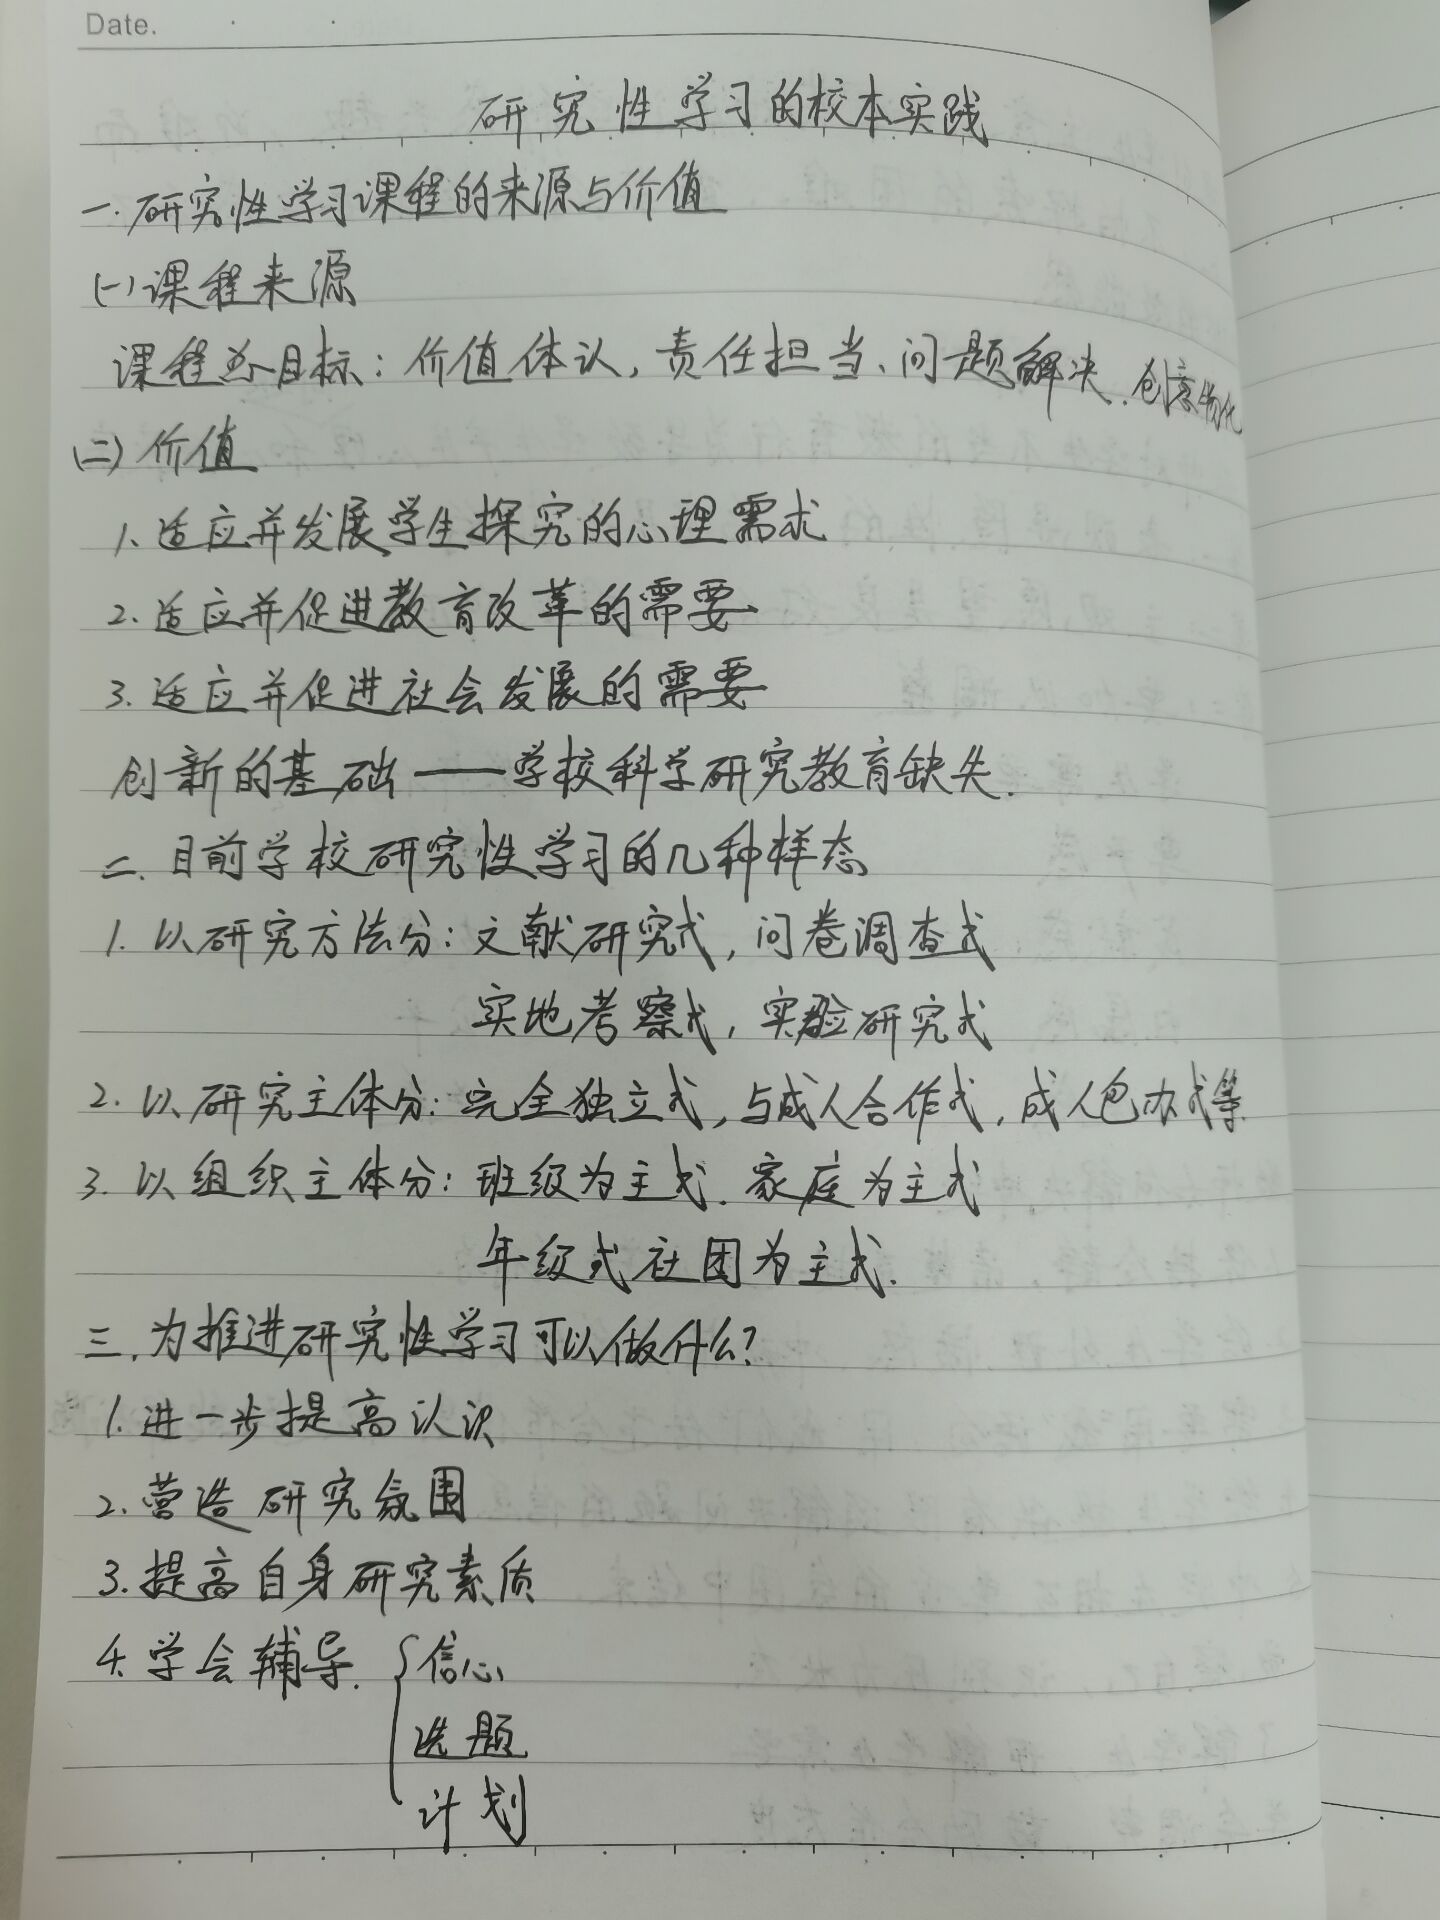 Date.
研究性学习的校本实践
一.研究性学习课程的来源与价值
(一)课程来源
课程总目标：价值体认，责任担当、问题解决.创意物化
(二)价值
1、适应并发展学生探究的心理需求
2.适应并促进教育改革的需要
3.适应并促进社会发展的需要
创新的基础——学校科学研究教育缺失.
二.目前学校研究性学习的几种样态
1.以研究方法分：文献研究式，问卷调查式
实地考察式，实验研究式
2.以研究主体分：完全独立式，与成人合作式，成人包办式等
3.以组织主体分：班级为主式.家庭为主式
年级式社团为主式.
三.为推进研究性学习可以做什么?
1.进一步提高认识
2.营造研究氛围
3.提高自身研究素质
4.学会辅导. {信心
选题
计划